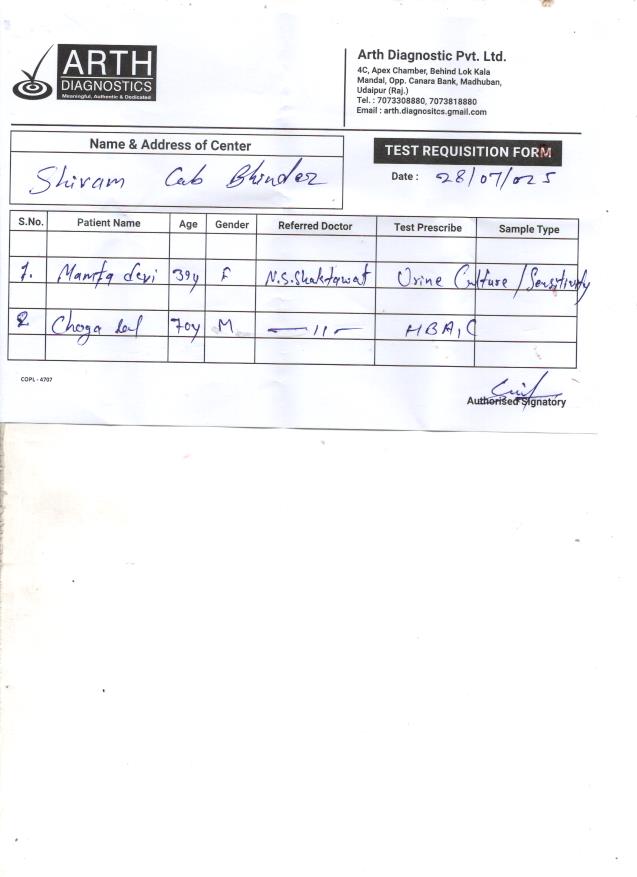 ARTH
DIAGNOSTICS
Meaningful, Authentic & Dedicated
Arth Diagnostic Pvt. Ltd.
4C, Apex Chamber, Behind Lok Kala
Mandal, Opp. Canara Bank, Madhuban,
Udaipur (Raj.)
Tel. : 7073308880, 7073818880
Email : arth.diagnositcs.gmail.com
Name & Address of Center
Shivam Lab Bhinder
TEST REQUISITION FORM
Date : 28/07/025
S.No. Patient Name Age Gender Referred Doctor Test Prescribe Sample Type
1. Mamta devi 39y F N.S.Shaktawat Urine Culture/Sensitivity
2 Choga Lal 70y M —11— HBA1C
COPL - 4707
Authorised Signatory